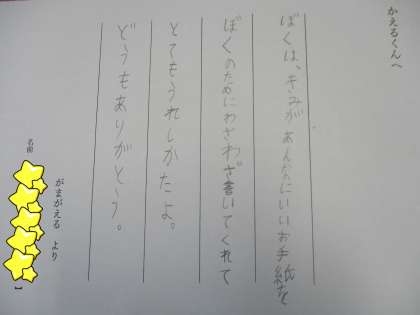 かえるくんへ
ぼくは、きみがあんなにいいお手紙を
ぼくのためにわざわざ書いてくれて
とてもうれしかたよ。
どうもありがとう。
がまがえる より
名前
】